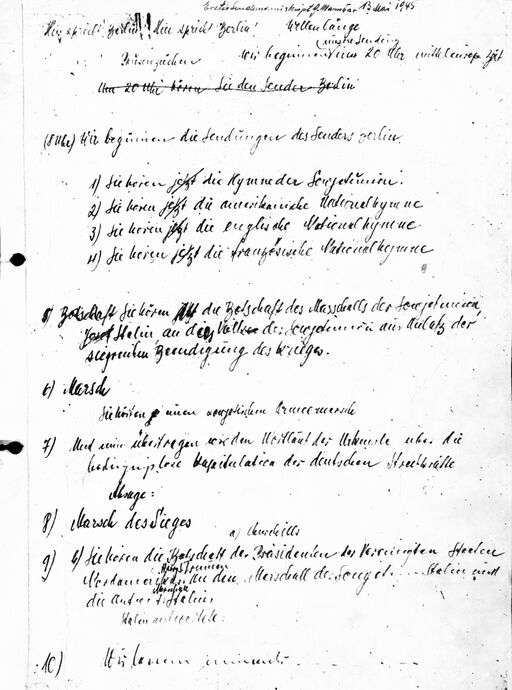 13. Mai 1945
Hier spricht Berlin! Hier spricht Berlin! Wellenlänge
unsere Sendung
Pausenzeichen Wir beginnen um 20 Uhr mitteleurop. Zeit
Um 20 Uhr hören Sie den Sender Berlin
(8 Uhr) Wir beginnen die Sendungen des Senders Berlin.
1) Sie hören jetzt die Hymne der Sowjetunion.
2) Sie hören jetzt die amerikanische Nationalhymne
3) Sie hören jetzt die englische Nationalhymne
4) Sie hören jetzt die französische Nationalhymne
5) Botschaft Sie hören jetzt die Botschaft des Marschalls der Sowjetunion,
Josef Stalin an die Völker der Sowjetunion aus Anlaß der
siegreichen Beendigung des Krieges.
6) Marsch
Sie hörten einen sowjetischen Armeemarsch
7) Und nun übertragen wir den Wortlaut der Urkunde über die
bedingungslose Kapitulation der deutschen Streitkräfte
Absage:
8) Marsch des Sieges
a) Churchills
9) b) Sie hören die Botschaft des Präsidenten der Vereinigten Staaten
Truman
Nordamerikas an den Marschall der Sowjet Stalin und
die Antwort Stalins
Stalin antwortete:
10)